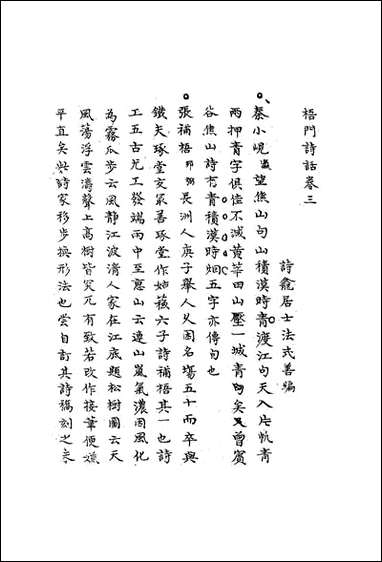 梧門詩話卷三
詩龕居士法式善編
秦小峴望焦山句山積漢時青渡江句天入片帆青
兩押青字俱佳不減黃華田山壓一城青句矣又曾賓
谷焦山詩有青積漢時烟五字亦傳句也
張補梧邦弼長洲人庚子舉人久困名場五十而卒與
鐵夫琢堂交最善琢堂作姑蘇六子詩補梧其一也詩
工五古尤工發端雨中至惠山云連山嵐氣濃因風化
為霧瓜步云風靜江波清人家在江底題松樹圖云天
風蕩浮雲濤聲上高樹皆突兀有致若改作接筆便嫌
平直矣此詩家移步換形法也嘗自訂其詩稿刻之未